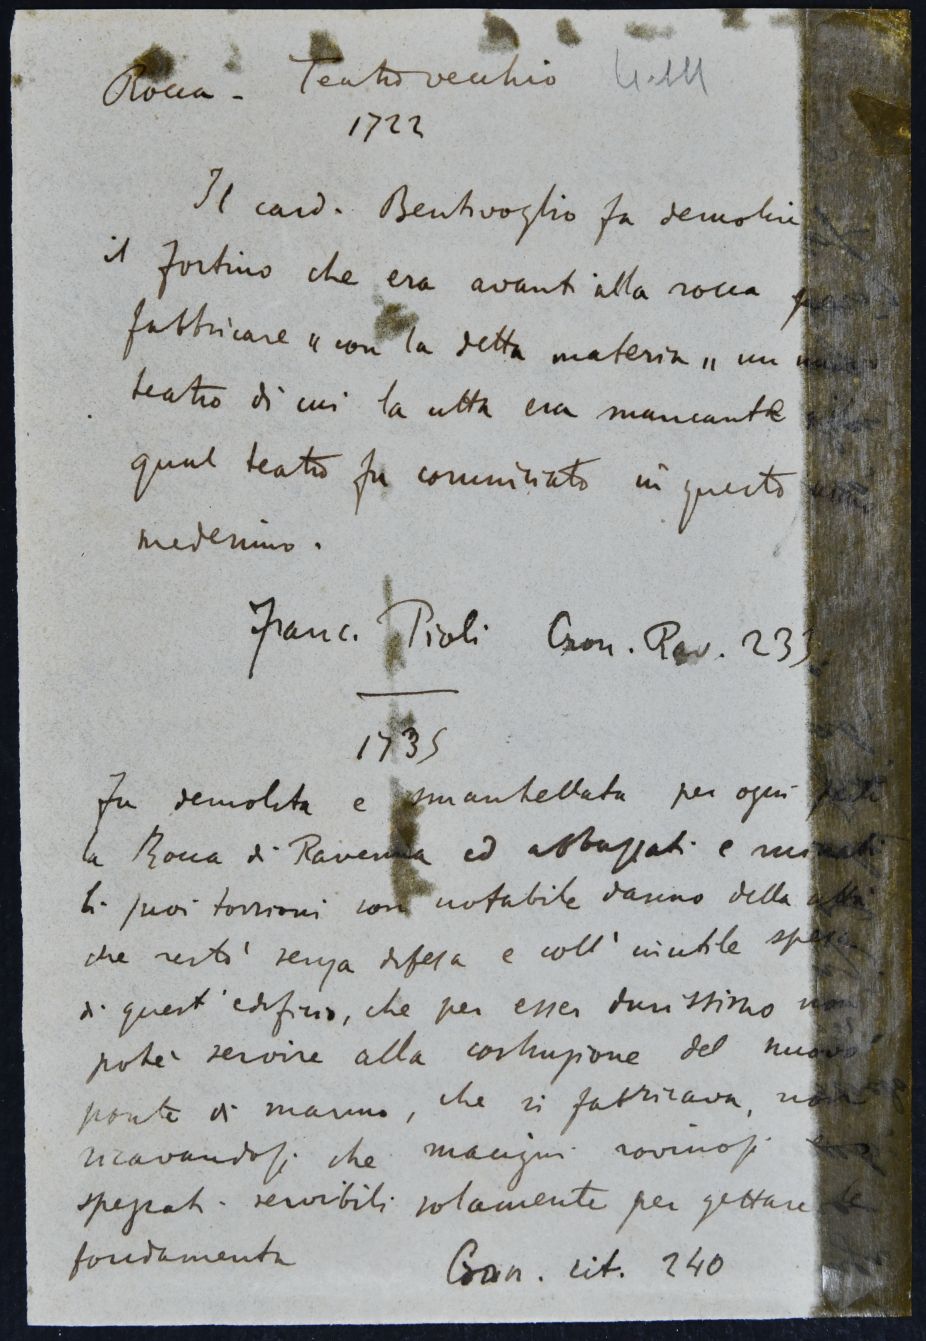 Rocca - Teatro vecchio
1722
Il card. Bentivoglio fa demolire
il fortino che era avanti alla rocca per
fabbricare "con la detta materia" un nuovo
teatro di cui la citta era mancante il
qual teatro fu cominciato in questo anno
medesimo.
Franc. Pioli Cron. Rav. 233.
1735
Fu demolita e smantellata per ogni parte
la Rocca di Ravenna ed abbassati e minati
li suoi torrioni con notabile danno della città
che restò senza difesa e coll' inutile spesa
di quest' edifizio, che per esser durissimo non
potè servire alla costruzione del nuovo
ponte di marmo, che si fabbricava, non
ricavandosi che macigni rovinosi e
spezzati servibili solamente per gettare le
fondamenta
Cron. cit. 240